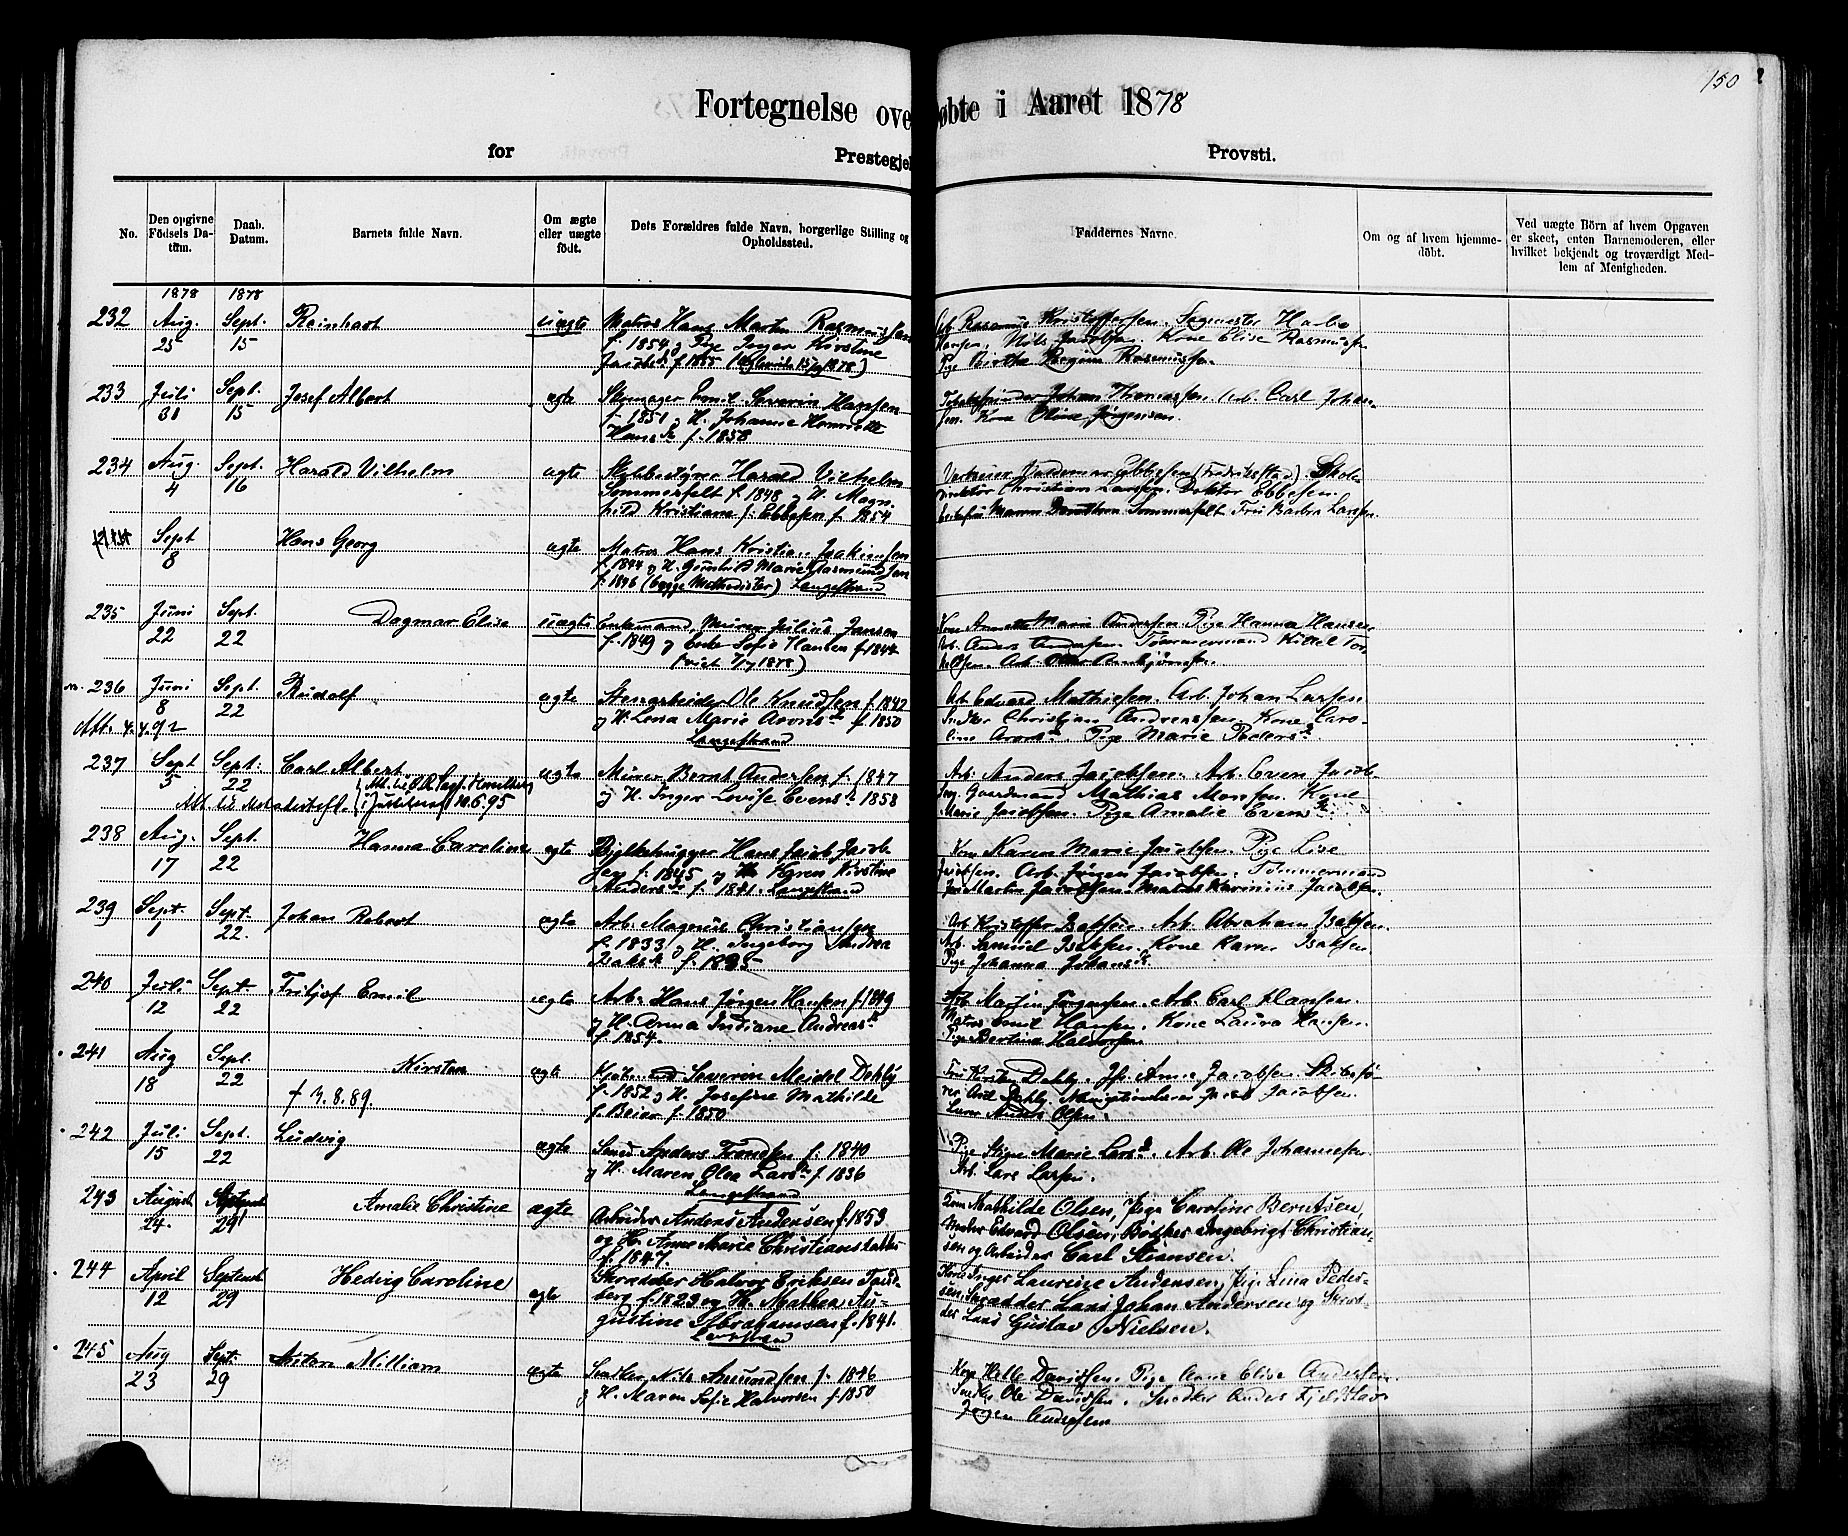 150
Fortegnelse ove øbte i Aaret 1878
for Prestegjel Provsti.
No.
Den opgivne Födsels Da-
tum.
Daab.
Datum.
Barnets fulde Navn.
Om ægte
eller uægte
födt.
Dets Forældres fulde Navn, borgerlige Stilling og
Opholdssted.
Faddernes Navne.
Om og af hvem hjemme-
döbt.
Ved uægte Börn af hvem Opgaven
er skeet, enten Barnemoderen, eller
hvilket bekjendt og troværdigt Med-
lem af Menigheden.
1878 1878
232 Aug. 25 Sept. 15 Reinhart uægte
Matros Hans Martin Rasmussen
f. 1854 og Pige Inger Kirstine
f. 1855
Rasmus Kristoffersen. Hans
Nils Jacobsen. Kone Elise Rasmussen
Pige Birthe Regine Rasmussen.
233 Juli 31 Sept. 15 Josef Albert ægte
Skomager Emil Severin Hansen
f. 1851 og H. Johanne Henriette
Hansd. f. 1858
Johan Thomassen Arb. Carl Johan-
sen. Kone Oline Jörgensen.
234 Aug. 4 Sept. 16 Harald Vilhelm ægte
Harald Vilhelm
Sommerfelt f. 1848 og H. Magn
hild Kristiane f. Ebbesen f. 1854
Valdemar Ebbesen (Fredrikstad) Skole
direktör Christian Larsen. Doktor Ebbesen.
Maren Dorothea Sommerfelt Fru Barbra Larsen
Sept 8 Hans Georg ægte
Matros Hans Kristian Joakimsen
f. 1844 og H. Gunhild Marie Rasmundsen
f. 1846 (begge Methodister) Langestrand
235 Juni 22 Sept. 22 Dagmar Elise uægte
Enkemand Murer Julius Jansen
f. 1849 og Enke Sofie Hansen f. 1844
Kone Annette Marie Andersen Pige Hanna Hansen
Arb. Anders Andersen Tömmermand Kittel Tor
236 Juni 8 Sept. 22 Rudolf ægte
Stenarbeider Ole Knudsen f. 1842
og H. Lena Marie Aronsd. f. 1850
Langestrand
Att. 4.4.92
Arb. Edvard Mathiesen. Arb. Johan Larsen
Snedker Christian Andreassen. Kone Caro-
line Aronsd. Pige Marie Pedersd.
237 Sept 5 Sept. 22 Carl Albert ægte
Murer Bernt Andersen f. 1847
og H. Inger Lovise Evensd. 1858
10.6.95
Arb. Anders Jacobsen. Arb. Even Jacob-
sen. Gaardmand Mathias Monsen. Kone
Marie Jacobsen. Pige Amalie Evensd.
238 Aug. 17 Sept. 22 Hanna Caroline ægte
Hans Jacob Jacob
sen f. 1845 og H. Karen Kirstine
Andersd. f. 1841. Langestrand
Kone Karen Marie Jacobsen. Pige Lise
Jacobsen. Arb. Jörgen Jacobsen. Tömmermand
Jacobsen Matros Karinius Jacobsen.
239 Sept. 1 Sept. 22. Johan Robert ægte
Arb. Magnus Christiansen
f. 1833 og H. Ingeborg Andrea
Isaksd. f. 1835
Arb. Kristoffer Isaksen. Arb. Abraham Isaksen.
Arb. Samuel Isaksen. Kone Karen Isaksen.
Pige Johanna Johansd.
240 Juli 12 Sept 22 Fritjof Emil ægte
Arb. Hans Jörgen Hansen f. 1849
og H. Anna Indiane Andreasd.
f. 1854.
Arb. Martin Jörgensen. Arb. Carl Hansen.
Matros Emil Hansen. Kone Laura Hansen.
Pige Bertine Halvorsen.
241 Aug 18 Sept. 22 Kirsten ægte
† 3.8.89.
Severin Meidel Dehly
f. 1852 og H. Josefine Mathilde
f. Beier f. 1850
Fru Kirsten Dehly. Jfr. Anne Jacobsen Skibsfö-
rer Axel Dehly. Jacob Jacobsen.
Anders Olsen.
242 Juli 15 Sept. 22 Ludvig ægte
Smed Anders Trondsen f. 1840
og H. Maren Olea Larsd. f. 1836
Langestrand
Pige Stine Marie Larsd. Arb. Ole Johannesen
Arb. Lars Larsen.
243 August 24. Septemb 29 Amalie Christine ægte
Arbeider Anders Andersen f. 1853
og H. Anne Marie Christiansdatter
f. 1847.
Kone Mathilde Olsen, Pige Caroline Berntsen,
Matros Edvard Olsen, Bödker Ingebrigt Christian-
sen og Arbeider Carl Stiansen.
244 April 12 Septemb 29 Hedvig Caroline ægte
Skrædder Halvor Eriksen Tand-
berg f. 1823 og H. Mathea Au-
gustine Abrahamsen f. 1841.
Langestrand
Kone Inger Laurine Andersen, Pige Lina Peder-
sen, Skrædder Lars Johan Andersen og Skræd-
der Lars Gustav Nielsen.
245 Aug 23 Sept. 29 Anton William ægte
Snedker Nils Amundsen f. 1846
og H. Maren Sofie Halvorsen f. 1850
Kone Helle Davidsen. Pige Anne Elise Andersen.
Snedker Ole Davidsen. Snedker Anders Fjeldstad
Jörgen Andersen